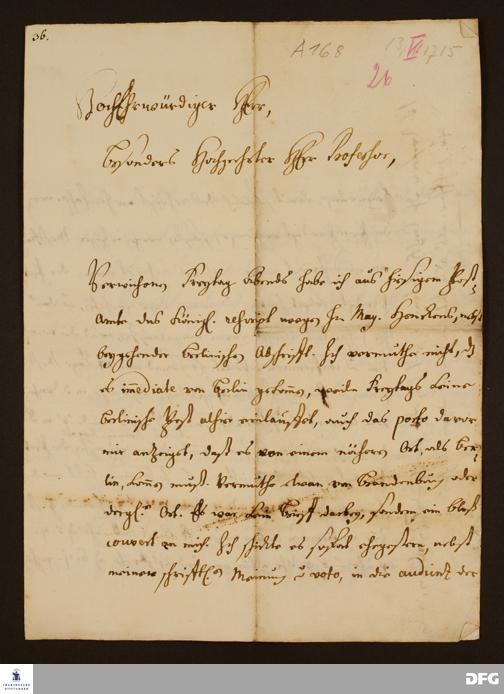 36.
A 168
13. VI. 1715
26
HochEhrwürdiger Herr,
besonders Hochgeehrter Herr Professor,
Verwichenen Freytag Abends habe ich aus hiesigem Post-
amte das Königl. rescript wegen Hn. Mag. Henckens, nebst
beygehender Berlinischen Abschrifft. Ich vermuthe nicht, dß
es immediate von Berlin gekommen, weiln Freytags keine
Berlinische Post alhier einlauffet, auch das porto davor
mir anzeiget, daß es von einem nähern Ort, als Ber-
lin, kommen muß. Vermuthe etwan von Brandenburg oder
dergl. Ort. Es war kein Brieff darbey, sondern ein bloß
couvert an mich. Ich schickte es sofort ehegestern, nebst
meinem schrifftl. Meinung u voto, in die audientz der
FRANCKESCHE STIFTUNGEN
DFG